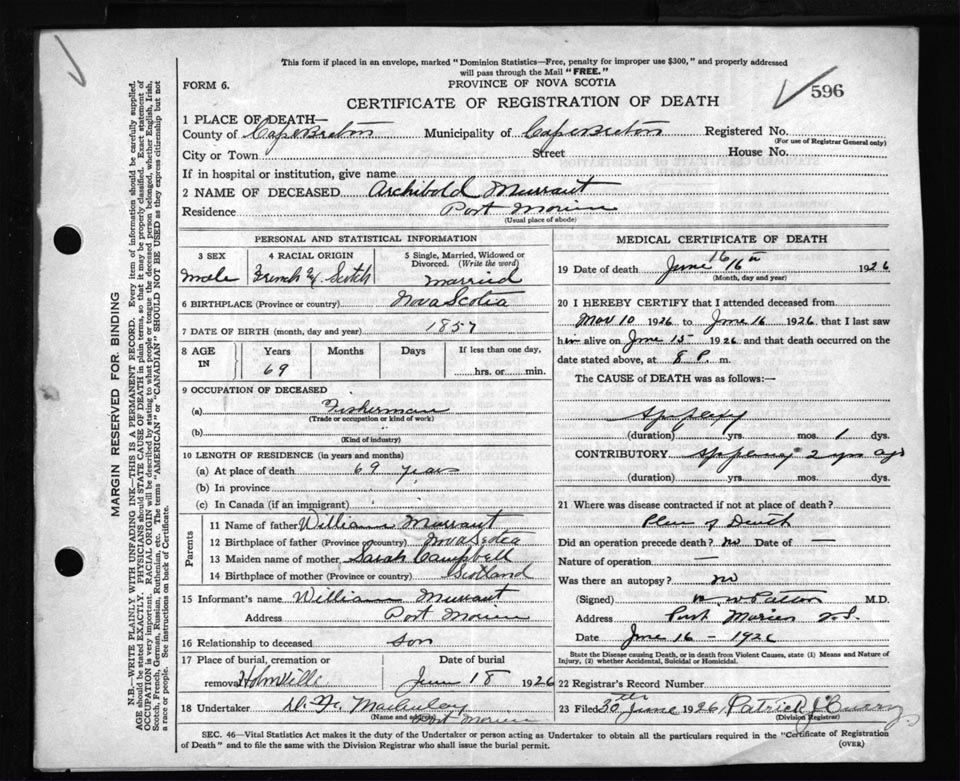 This form if placed in an envelope, marked "Dominion Statistics—Free, penalty for improper use $300," and properly addressed
will pass through the Mail "FREE."
FORM 6. PROVINCE OF NOVA SCOTIA
CERTIFICATE OF REGISTRATION OF DEATH 596
1 PLACE OF DEATH—
County of Cape Breton Municipality of Cape Breton Registered No.
(For use of Registrar General only)
City or Town Street House No.
If in hospital or institution, give name
2 NAME OF DECEASED Archibold Murrant
Residence Port Morien
(Usual place of abode)
PERSONAL AND STATISTICAL INFORMATION
3 SEX 4 RACIAL ORIGIN 5 Single, Married, Widowed or Divorced. (Write the word)
Male French & Scotch Married
6 BIRTHPLACE (Province or country) Nova Scotia
7 DATE OF BIRTH (month, day and year) 1857
8 AGE IN Years Months Days If less than one day,
69 hrs. or min.
9 OCCUPATION OF DECEASED
(a) Fisherman
(Trade or occupation or kind of work)
(b)
(Kind of industry)
10 LENGTH OF RESIDENCE (in years and months)
(a) At place of death 69 years
(b) In province
(c) In Canada (if an immigrant)
Parents
11 Name of father William Murrant
12 Birthplace of father (Province or country) Nova Scotia
13 Maiden name of mother Sarah Campbell
14 Birthplace of mother (Province or country) Scotland
15 Informant's name William Murrant
Address Port Morien
16 Relationship to deceased Son
17 Place of burial, cremation or removal Date of burial
Homville June 18 1926
18 Undertaker Macauley
(Name and address) Port Morien
MEDICAL CERTIFICATE OF DEATH
19 Date of death June 16 16th 1926
(Month, day and year)
20 I HEREBY CERTIFY that I attended deceased from
Nov 10 1926 to June 16 1926 that I last saw
him alive on June 15 1926 and that death occurred on the
date stated above, at 8 P. m.
The CAUSE of DEATH was as follows:—
Apoplexy
(duration) yrs. mos. 1 dys.
CONTRIBUTORY Apoplexy 2 yrs ago
(duration) yrs. mos. dys.
21 Where was disease contracted if not at place of death?
Place of Death
Did an operation precede death? no Date of —
Nature of operation —
Was there an autopsy? no
(Signed) Patton M.D.
Address Port Morien N.S.
Date June 16 - 1926
State the Disease causing Death, or in death from Violent Causes, state (1) Means and Nature of
Injury, (2) whether Accidental, Suicidal or Homicidal.
22 Registrar's Record Number
23 Filed 30th June 1926 Patrick
(Division Registrar)
SEC. 46—Vital Statistics Act makes it the duty of the Undertaker or person acting as Undertaker to obtain all the particulars required in the "Certificate of Registration
of Death" and to file the same with the Division Registrar who shall issue the burial permit. (OVER)
MARGIN RESERVED FOR BINDING
N.B.—WRITE PLAINLY WITH UNFADING INK—THIS IS A PERMANENT RECORD. Every item of information should be carefully supplied.
AGE should be stated EXACTLY. PHYSICIANS should STATE CAUSE OF DEATH in plain terms, so that it may be properly classified. Exact statement of
OCCUPATION is very important. RACIAL ORIGIN will be described by stating to what people or tongue the deceased person belonged, whether English, Irish,
Scotch, French, German, Russian, Ruthenian, etc. The terms "AMERICAN" or "CANADIAN" SHOULD NOT BE USED as they express citizenship but not
a race or people. See instructions on back of Certificate.